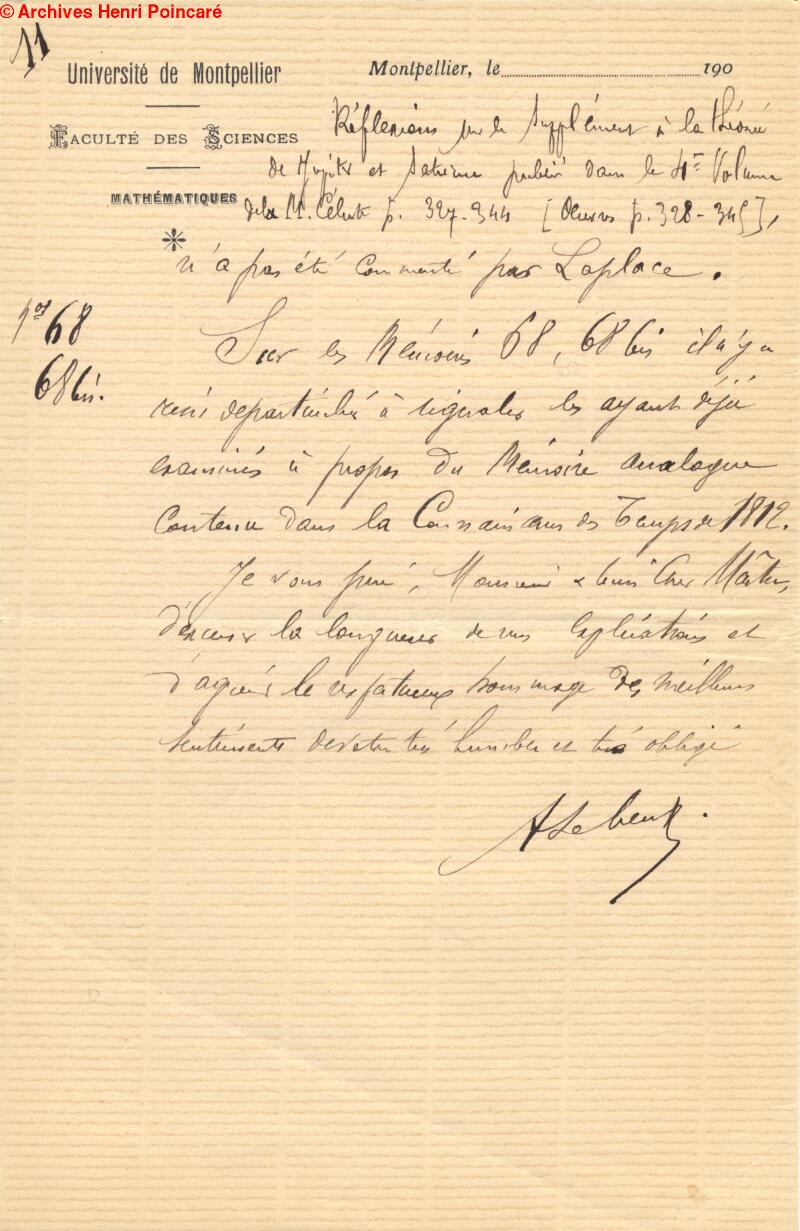 © Archives Henri Poincaré
11
Université de Montpellier
Montpellier, le 190
FACULTÉ DES SCIENCES
MATHÉMATIQUES
Réflexions sur le Supplément à la théorie
de Jupiter et Saturne publié dans le 4e Volume
de la M. Céleste p. 327-344 [Oeuvres p. 328-345],
n'a pas été commenté par Laplace.
nos 68
68 bis.
Sur les Mémoires 68, 68 bis il n'y a
rien de particulier à signaler les ayant déjà
examinés à propos du Mémoire analogue
Contenu dans la Connaissance des Temps de 1812.
Je vous prie, Monsieur & bien Cher Maître,
d'excuser la longueur de mes explications et
d'agréer le respectueux hommage des meilleurs
sentiments de votre très humble et très obligé